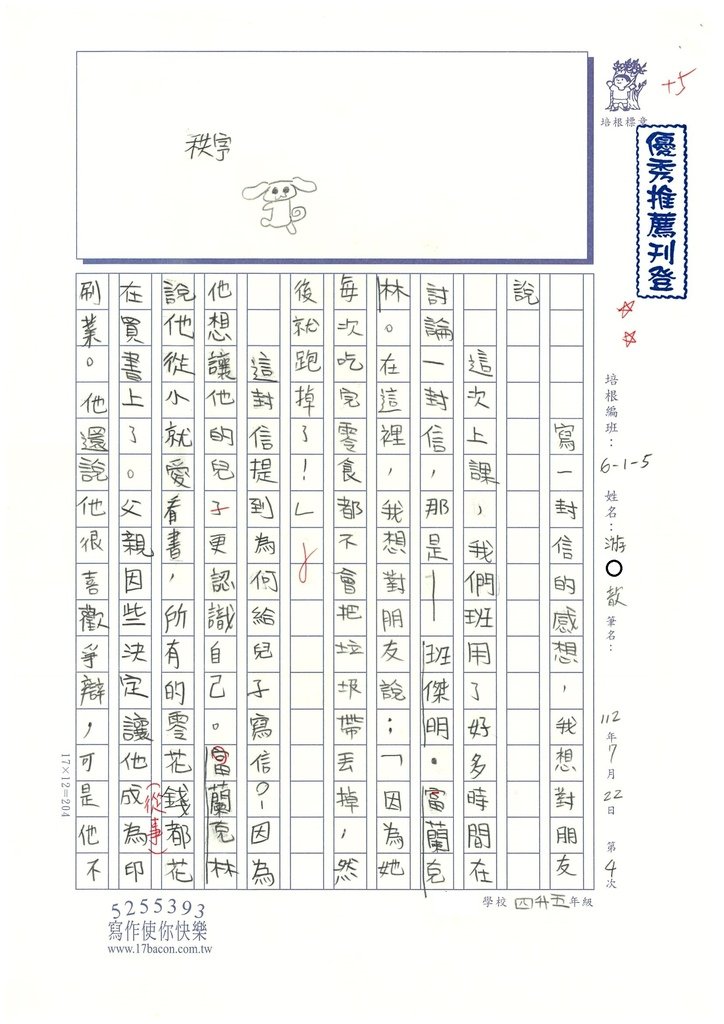 秩宇
培根標章
+5
優秀推薦刊登
培根編班：6-1-5 姓名：游○歆 筆名：
112年7月22日 第4次
學校 四升五年級
寫一封信的感想，我想對朋友
說
這次上課，我們班用了好多時間在
討論一封信，那是—班傑明·富蘭克
林。在這裡，我想對朋友說：「因為她
每次吃完零食都不會把垃圾帶丟掉，然
後就跑掉了！」
這封信提到為何給兒子寫信？因為
他想讓他的兒子更認識自己。富蘭克林
說他從小就愛看書，所有的零花錢都花
在買書上了。父親因些決定讓他成為印
(從事)
刷業。他還說他很喜歡爭辯，可是他不
17×12=204
5255393
寫作使你快樂
www.17bacon.com.tw